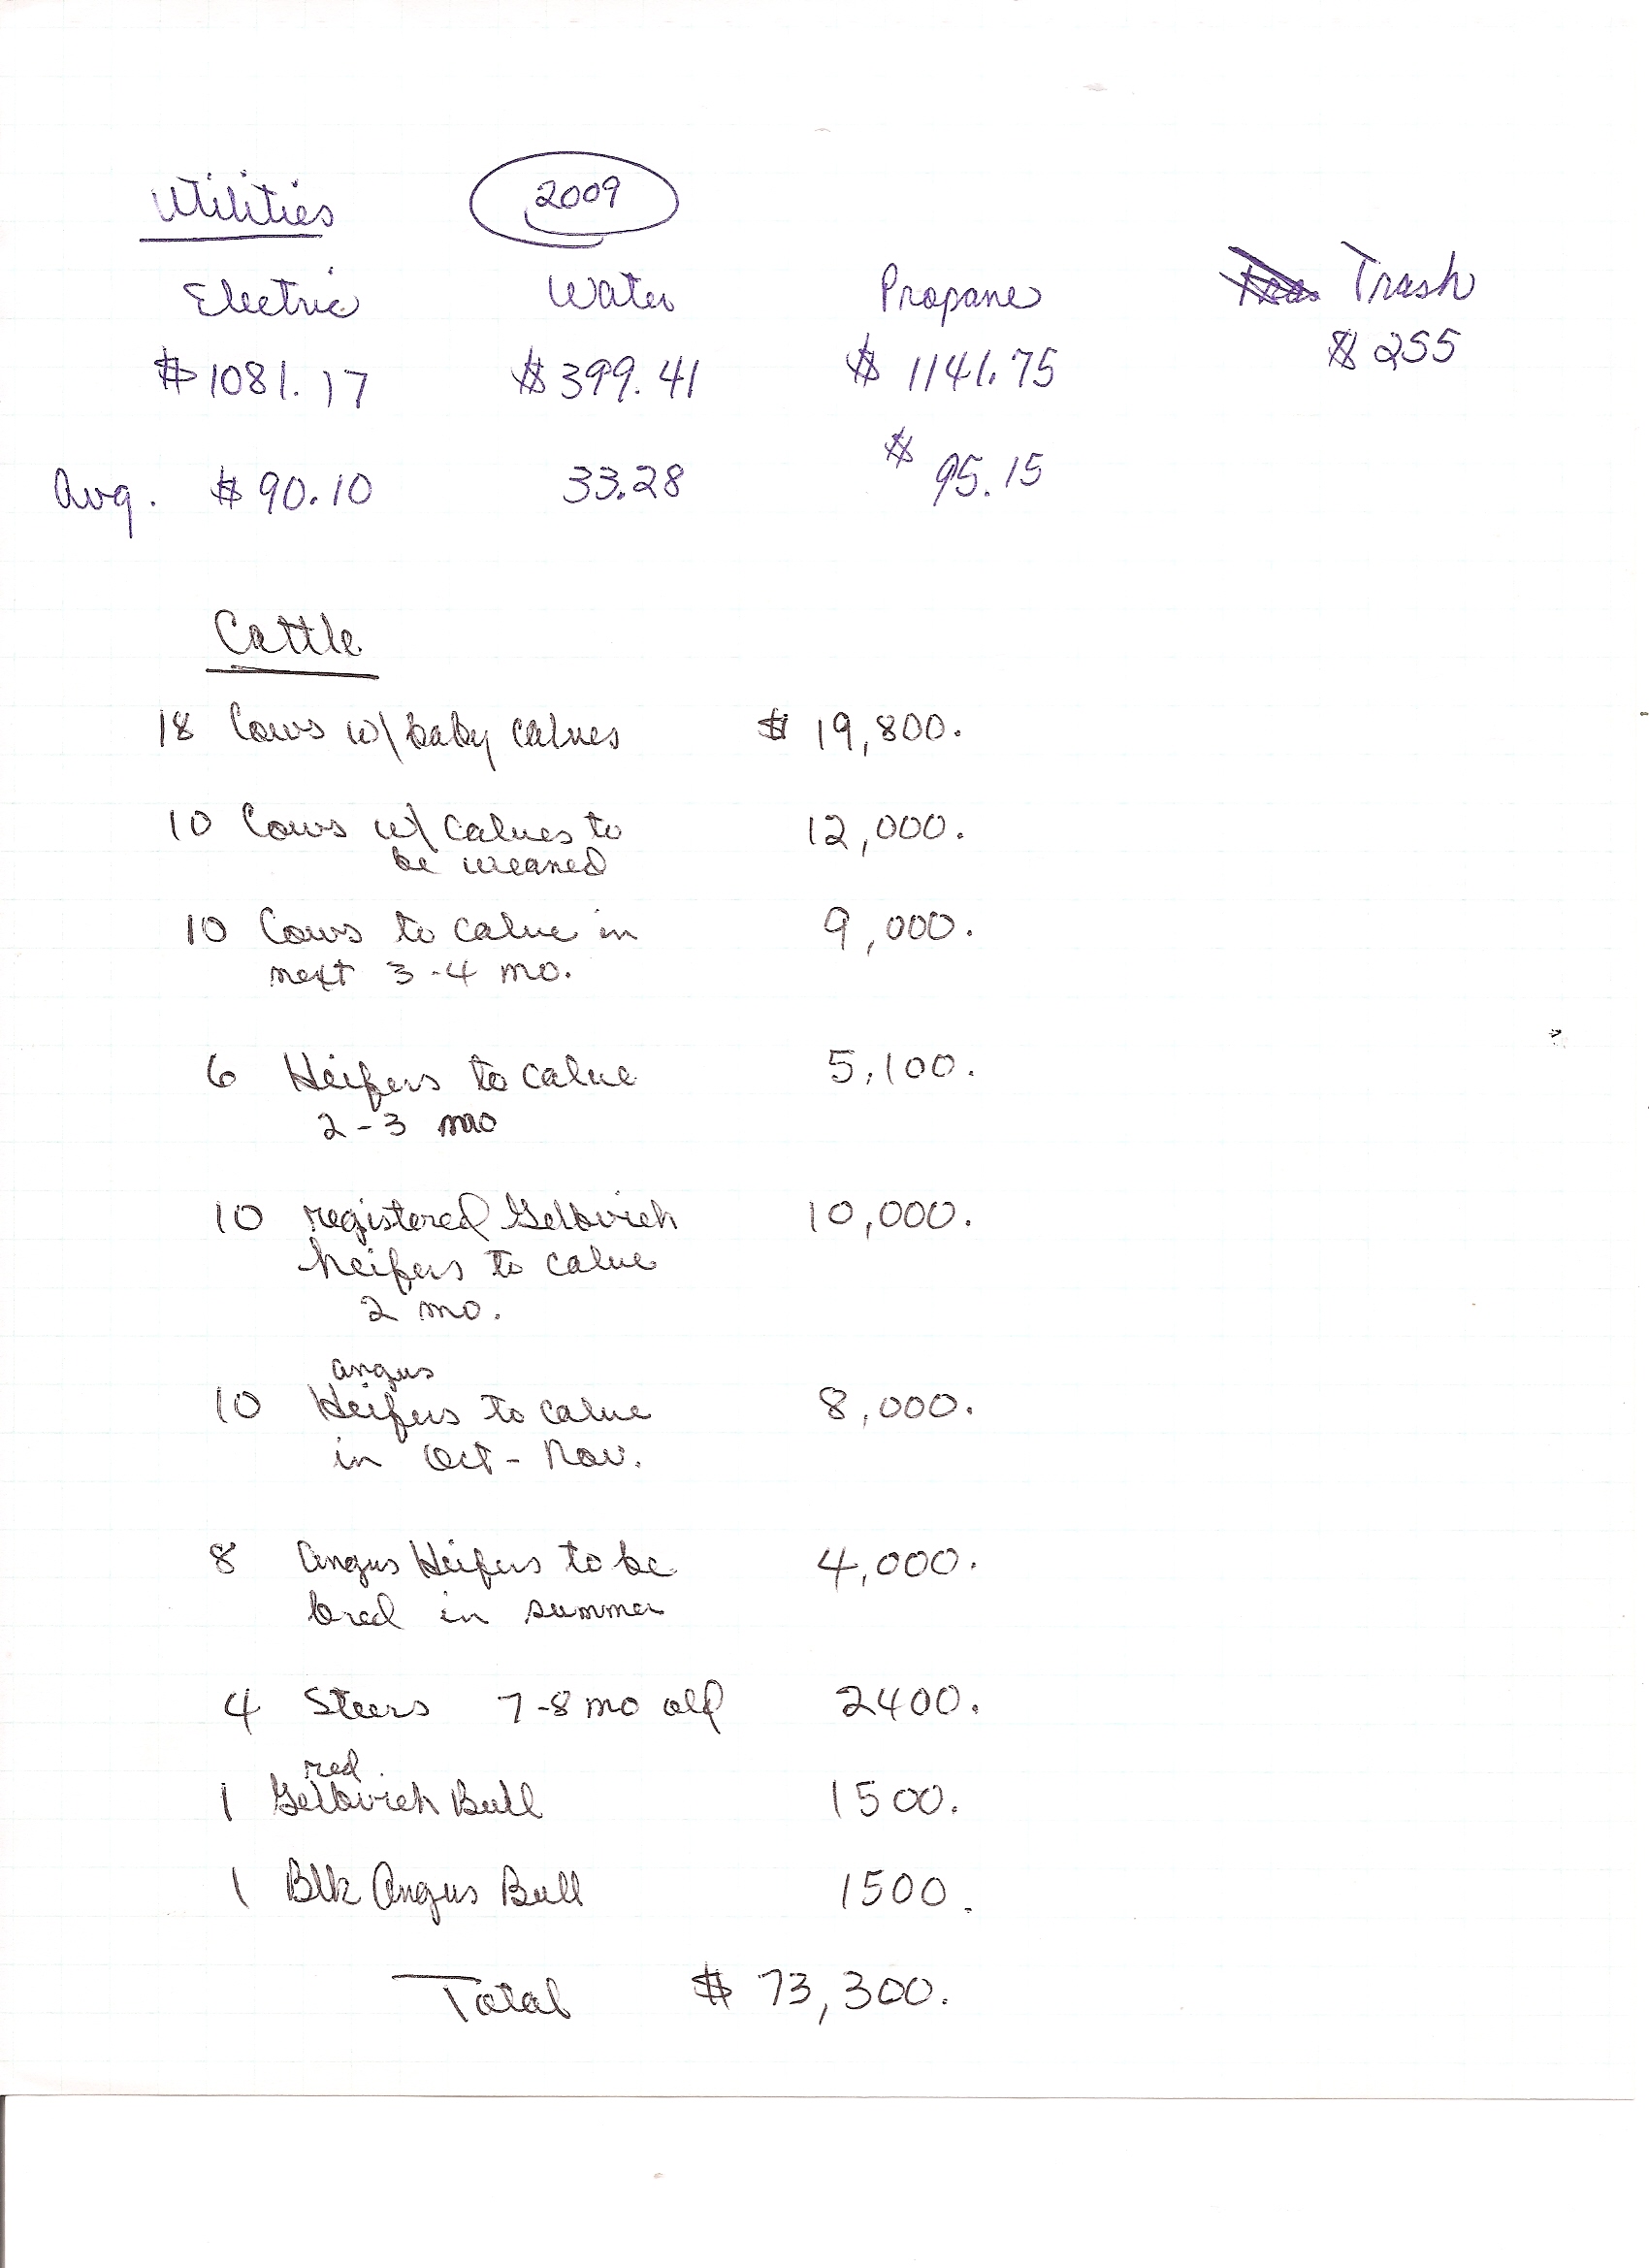 Utilities 2009
Electric Water Propane Trash
$1081.17 $399.41 $1141.75 $255
Avg. $90.10 33.28 $95.15
Cattle
18 Cows w/ baby calves $19,800.
10 Cows w/ calves to 12,000.
be weaned
10 Cows to calve in 9,000.
next 3-4 mo.
6 Heifers to calve 5,100.
2-3 mo
10 registered Gelbvieh 10,000.
heifers to calve
2 mo.
angus
10 Heifers to calve 8,000.
in Oct - Nov.
8 Angus Heifers to be 4,000.
bred in summer
4 Steers 7-8 mo old 2400.
red
1 Gelbvieh Bull 1500.
1 Blk Angus Bull 1500.
Total $73,300.